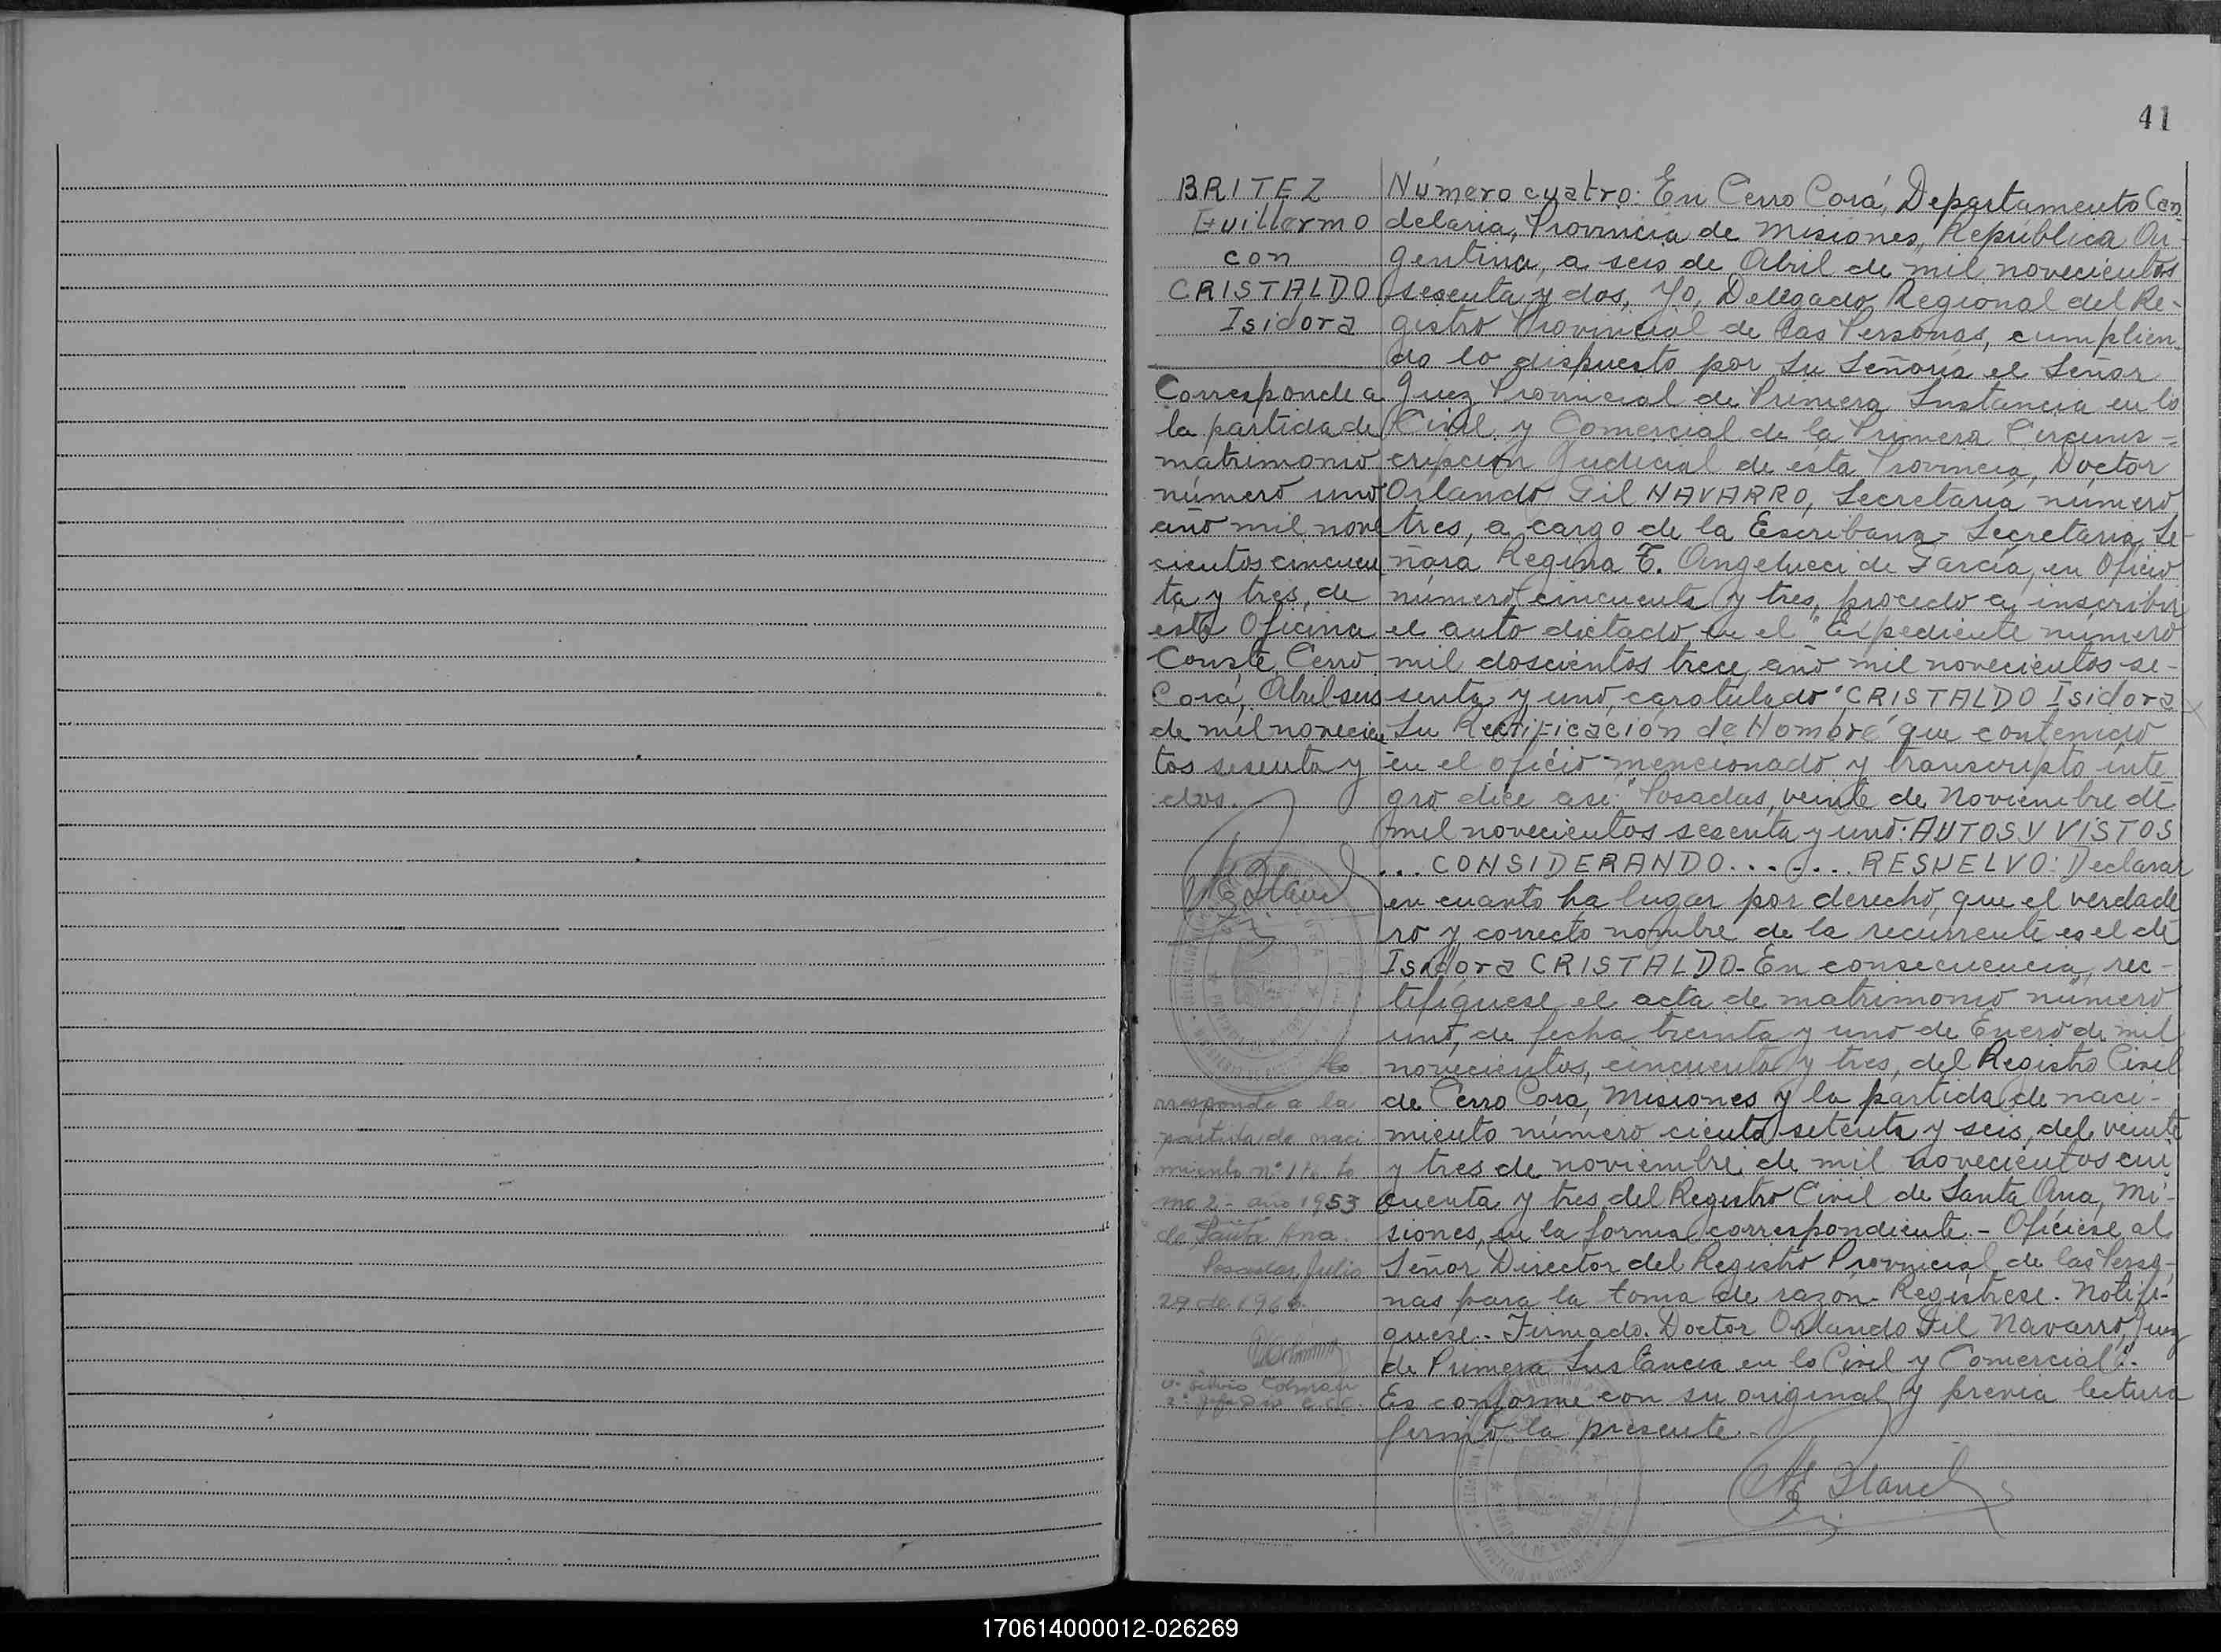 41
BRITEZ
Guillermo
con
CRISTALDO
Isidora
Corresponde a
la partida de
matrimonio
número uno
año mil nove
cientos cincuen
ta y tres, de
esta Oficina
Conste Cerro
Corá, Abril seis
de mil novecien
tos sesenta y
dos.
Co
rresponde a la
partida de naci
miento nº 176 to
mo 2 - año 1953
de Santa Ana.
Posadas, Julio
29 de 196
Colman
2º Jefe Div. C.C.C.
Número cuatro: En Cerro Corá, Departamento Can
delaria, Provincia de Misiones, República Ar-
gentina, a seis de Abril de mil novecientos
sesenta y dos, Yo, Delegado Regional del Re-
gistro Provincial de las Personas, cumplien-
do lo dispuesto por Su Señoría el Señor
Juez Provincial de Primera Instancia en lo
Civil y Comercial de la Primera Circuns-
cripción Judicial de esta Provincia, Doctor
Orlando Gil NAVARRO, Secretaría número
tres, a cargo de la Escribana-Secretaria Se-
ñora Regina T. Angelucci de García, en Oficio
número cincuenta y tres, procedo a inscribir
el auto dictado en el "Expediente número
mil doscientos trece año mil novecientos se-
senta y uno, caratulado "CRISTALDO Isidora
Su Rectificación de Nombre" que contenido
en el oficio mencionado y transcripto inte
gro dice así: "Posadas, veinte de Noviembre de
mil novecientos sesenta y uno: AUTOS Y VISTOS
... CONSIDERANDO....... RESUELVO: Declarar
en cuanto ha lugar por derecho, que el verdade
ro y correcto nombre de la recurrente es el de
Isidora CRISTALDO- En consecuencia, rec-
tifíquese el acta de matrimonio número
uno, de fecha treinta y uno de Enero de mil
novecientos, cincuenta y tres, del Registro Civil
de Cerro Corá, Misiones y la partida de naci-
miento número ciento setenta y seis, del veinte
y tres de noviembre de mil novecientos cin
cuenta y tres del Registro Civil de Santa Ana, Mi-
siones, en la forma correspondiente.- Ofíciese al
Señor Director del Registro Provincial de las Perso-
nas para la toma de razón- Regístrese. Notifí-
quese.- Firmado. Doctor Orlando Gil Navarro, Juez
de Primera Instancia en lo Civil y Comercial".
Es conforme con su original y previa lectura
firmo la presente.
170614000012-026269